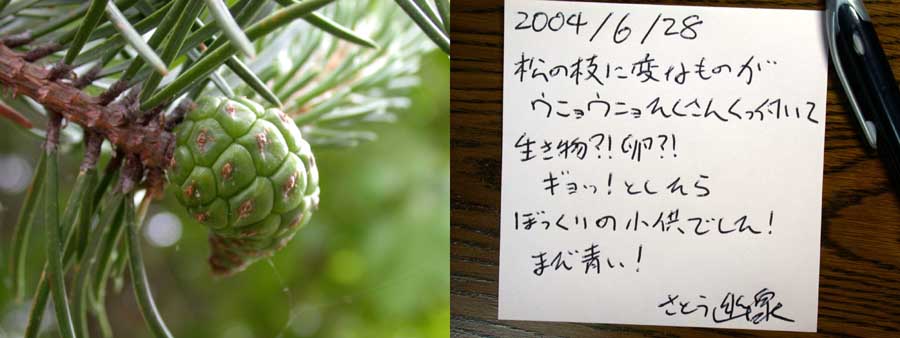 2004/6/28
松の枝に変なものが
ウニョウニョたくさんくっ付いて
生き物?!卵?!
ギョッ!としたら
ぼっくりの小供でした!
まだ青い!
さとう